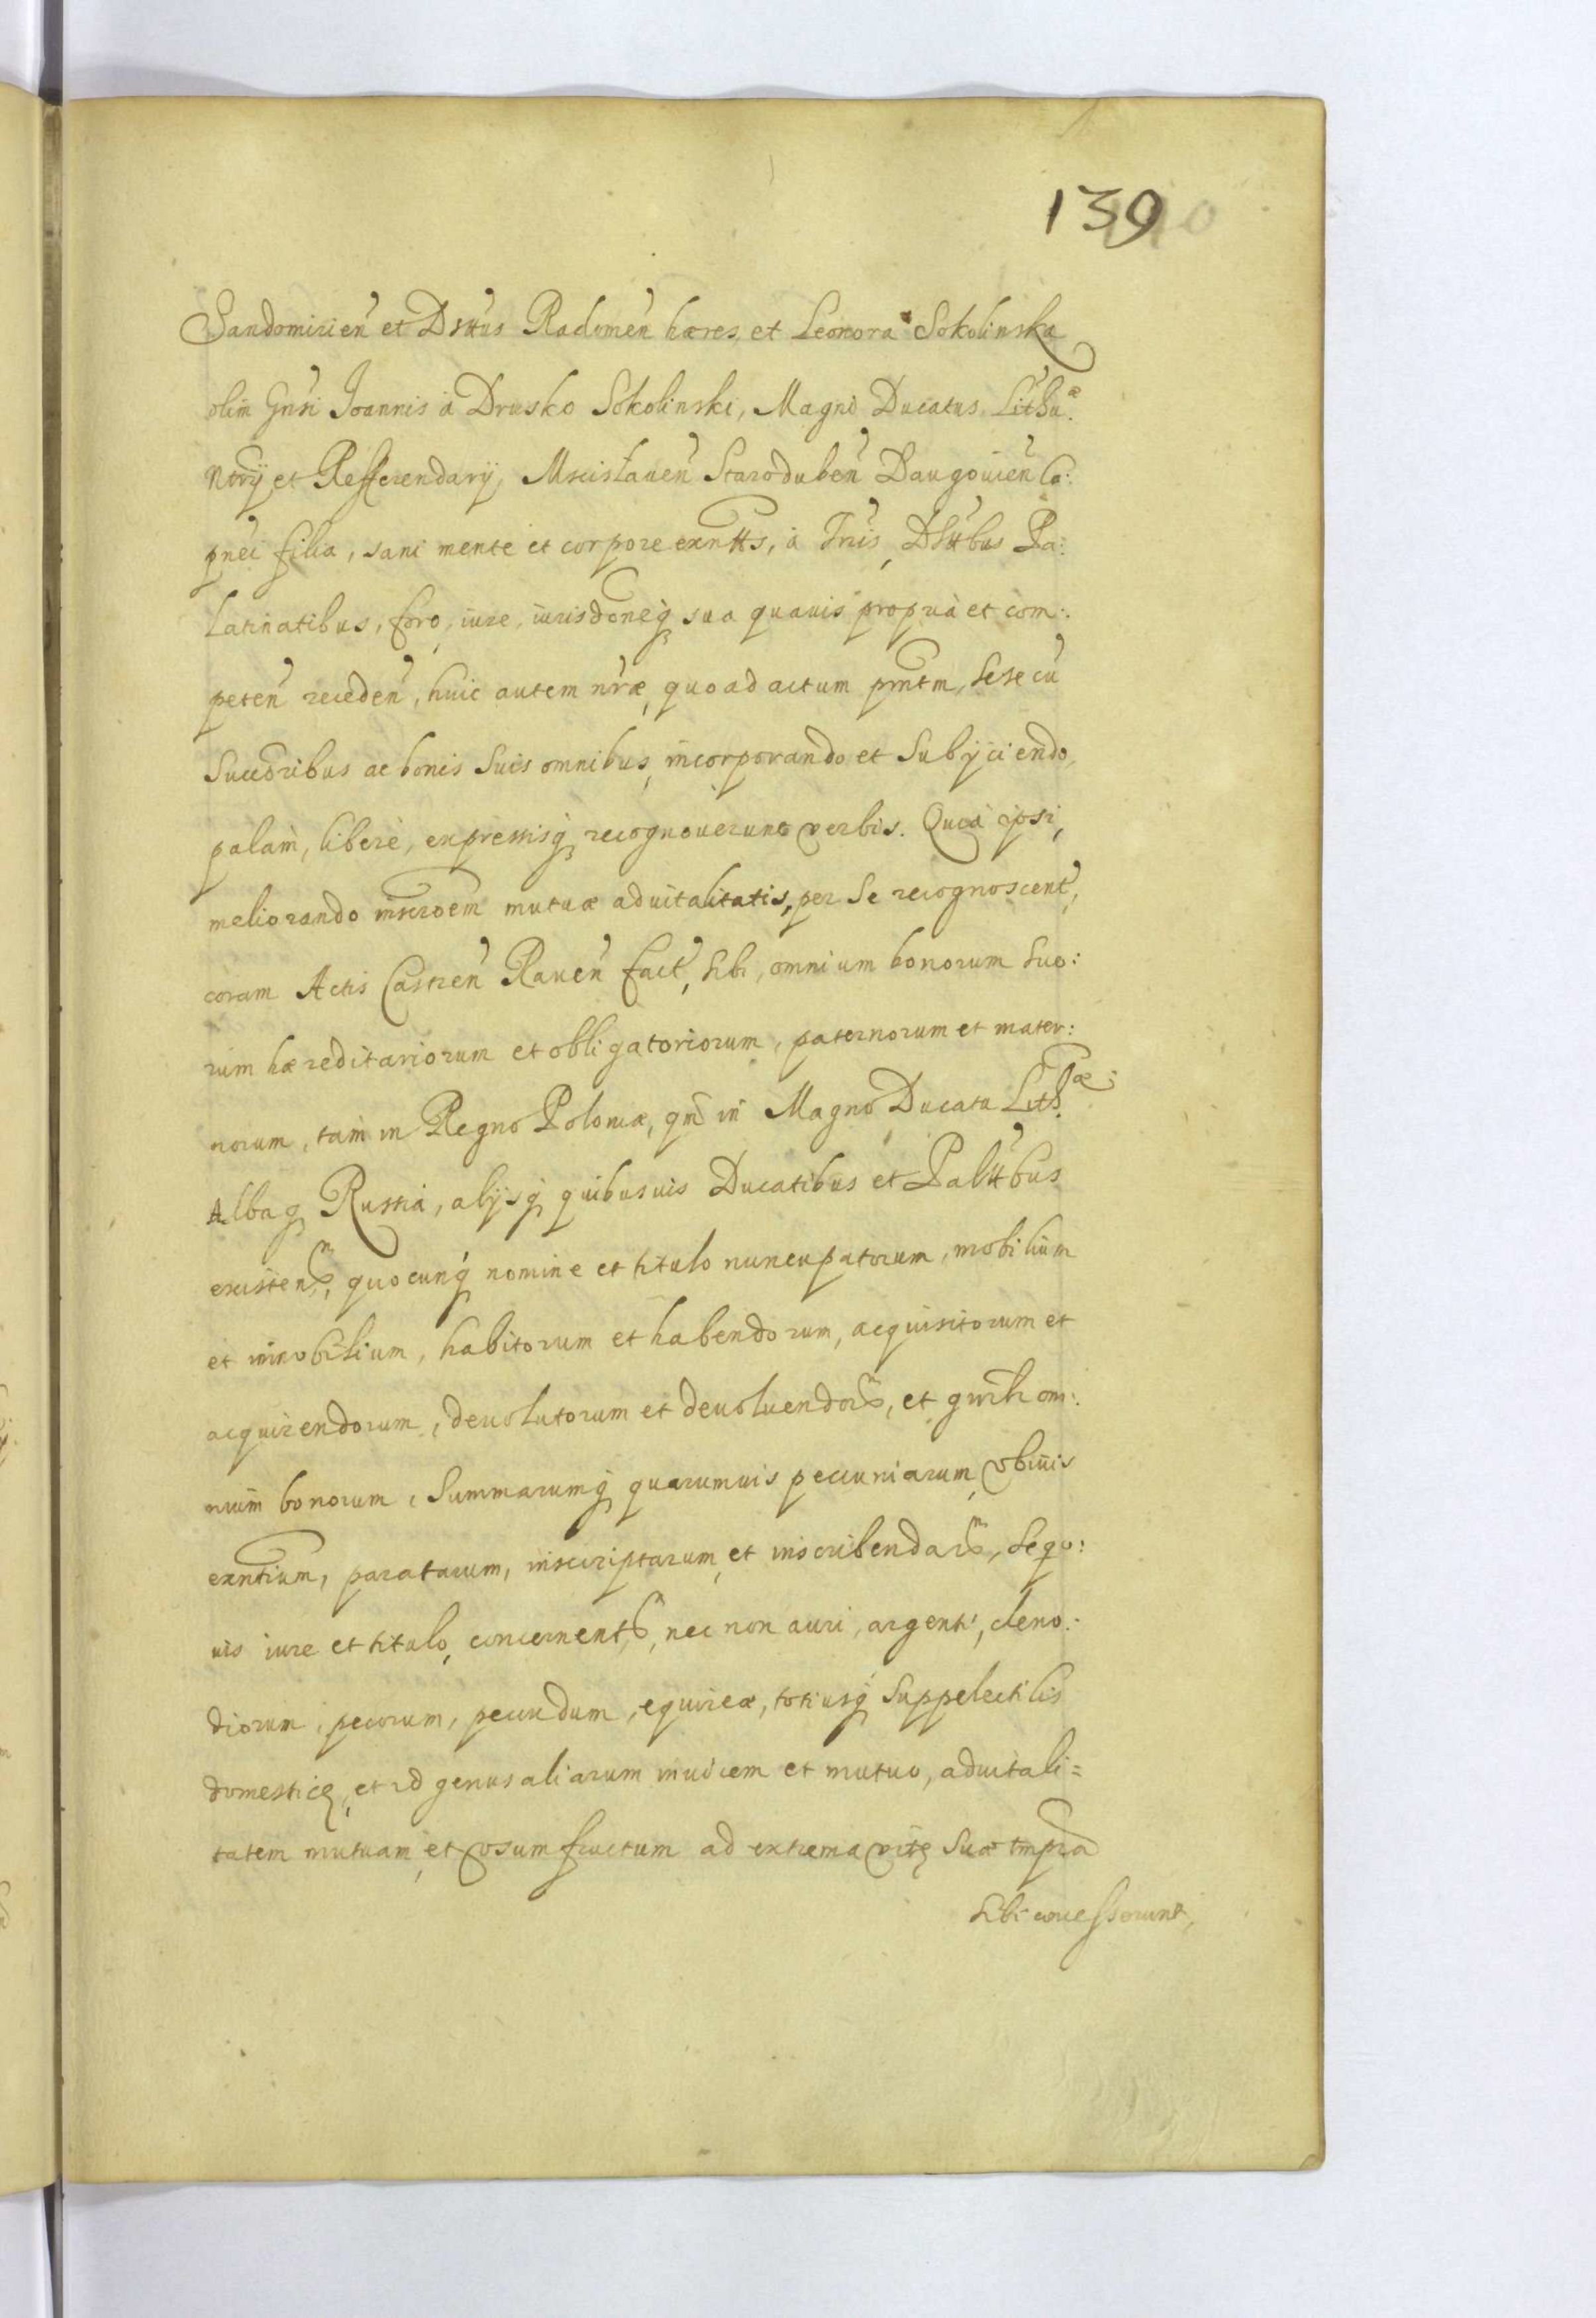 139
Sandomirień et Dsttús Radomeń hæres, et Leonora Sokolinska
olim Gńsi Joannis à Drusko Sokolinski, Magni Ducatus Lithuæ.
Ntrij et Refferendarij, Mscislaueń Starodubeń Daugouień Ca:
pnei filia, sani mente et corpore exntts, à Tris, Dsttbus Pa:
latinatibus, foro, iure, iurisdoneq₃ sua quauis propria et com:
peteń recedeń, huic autem nræ, quoad actum pntem, sese cū
succoribus ac bonis suis omnibus, incorporando et subijciendo,
palam, liberè, expressisq₃ recognouerunt verbis. Quia ipsi,
meliorando inscroem mutuæ aduitalitatis, per se recognoscent,
coram Actis Castreń Raueń fact, sibi, omnium bonorum suo:
rum hæreditariorum et obligatoriorum, paternorum et mater:
norum, tam in Regno Poloniæ, qm̄ in Magno Ducatu Lithæ:
Albaq₃ Russia, alijsq₃ quibusuis Ducatibus et Palttbus
existenm, quocunq₃ nomine et titulo nuncupatorum, mobilium
et immobilium, habitorum et habendorum, acquisitorum et
acquirendorum, deuolutorum et deuoluendorm, et gnrlr om:
nium bonorum, Summarumq₃ quarumuis pecuniarum, vbiuis
exntium, paratarum, inscriptarum, et inscribendarm, sequo:
uis iure et titulo, concernentm, nec non auri, argenti, cleno:
diorum, pecorum, pecudum, equireæ, totiusq₃ suppelectilis
domesticę, et id genus aliarum inuicem et mutuo, aduitali=
tatem mutuam, et vsumfructum ad extrema vitę suæ tmpra
sibi concesserunt,